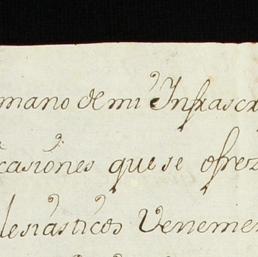 mano de mi Infrascr
casiones que se ofrez
lesiasticos Veneme